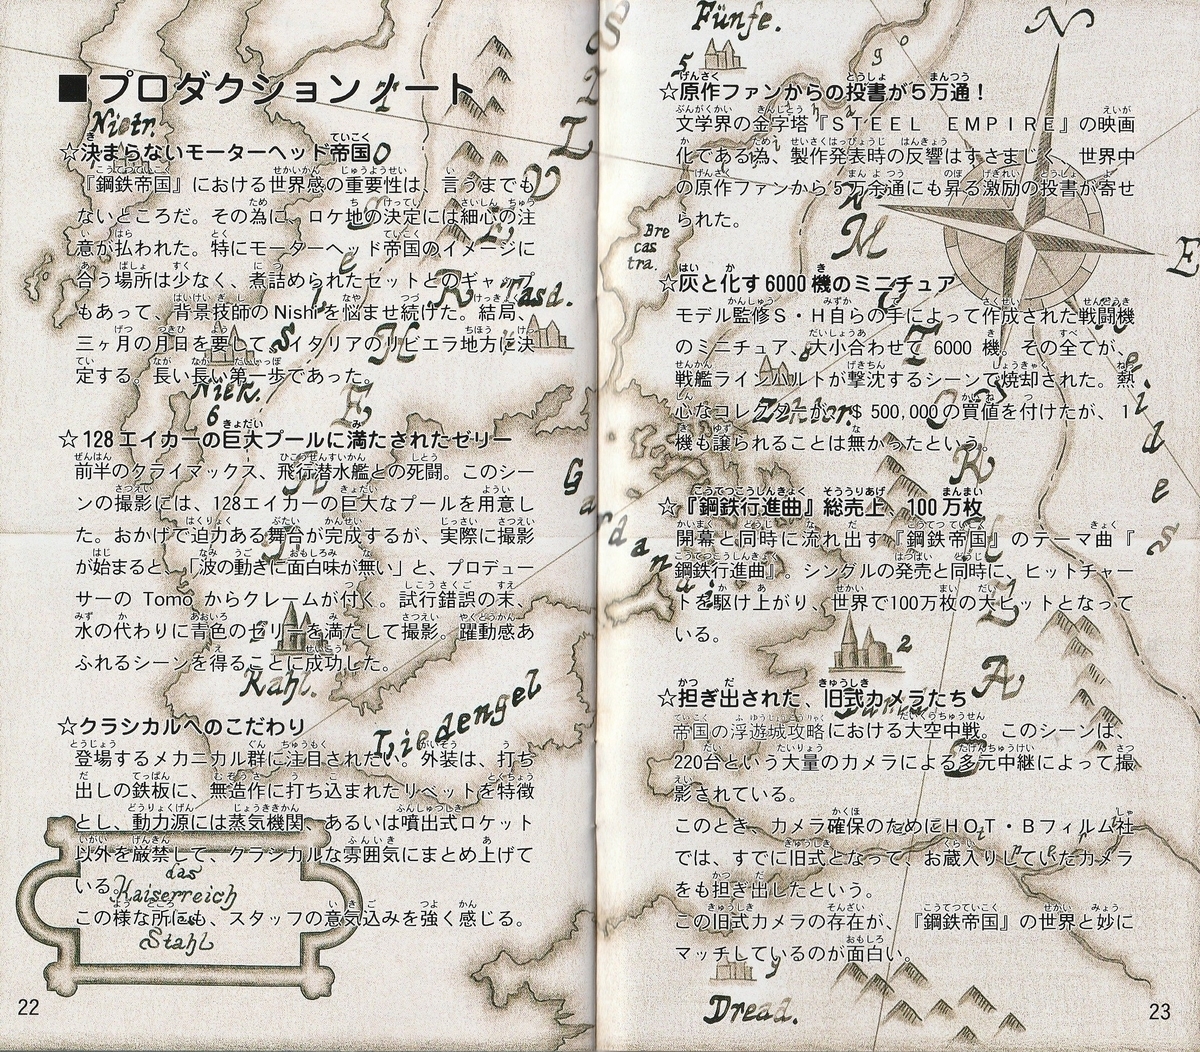 ■プロダクションノート
☆決まらないモーターヘッド帝国
『鋼鉄帝国』における世界感の重要性は、言うまでも
ないところだ。その為に、ロケ地の決定には細心の注
意が払われた。特にモーターヘッド帝国のイメージに
合う場所は少なく、煮詰められたセットとのギャップ
もあって、背景技師の Nishi を悩ませ続けた。結局、
三ヶ月の月日を要して、イタリアのリビエラ地方に決
定する。長い長い第一歩であった。
☆128 エイカーの巨大プールに満たされたゼリー
前半のクライマックス、飛行潜水艦との死闘。このシー
ンの撮影には、128エイカーの巨大なプールを用意し
た。おかげで迫力ある舞台が完成するが、実際に撮影
が始まると、「波の動きに面白味が無い」と、プロデュー
サーの Tomo からクレームが付く。試行錯誤の末、
水の代わりに青色のゼリーを満たして撮影。躍動感あ
ふれるシーンを得ることに成功した。
☆クラシカルへのこだわり
登場するメカニカル群に注目されたい。外装は、打ち
出しの鉄板に、無造作に打ち込まれたリベットを特徴
とし、動力源には蒸気機関、あるいは噴出式ロケット
以外を厳禁して、クラシカルな雰囲気にまとめ上げて
いる。
この様な所にも、スタッフの意気込みを強く感じる。
das
Kaiserreich
Stahl
Niotr.
Niek.
6
Rahl.
Liedengel
22
☆原作ファンからの投書が５万通！
文学界の金字塔『ＳＴＥＥＬ　ＥＭＰＩＲＥ』の映画
化である為、製作発表時の反響はすさまじく、世界中
の原作ファンから５万余通にも昇る激励の投書が寄せ
られた。
☆灰と化す 6000 機のミニチュア
モデル監修Ｓ・Ｈ自らの手によって作成された戦闘機
のミニチュア、大小合わせて 6000 機。その全てが、
戦艦ラインバルトが撃沈するシーンで焼却された。熱
心なコレクターが、＄500,000の買値を付けたが、１
機も譲られることは無かったという。
☆『鋼鉄行進曲』総売上、100 万枚
開幕と同時に流れ出す『鋼鉄帝国』のテーマ曲『
鋼鉄行進曲』。シングルの発売と同時に、ヒットチャー
トを駆け上がり、世界で100万枚の大ヒットとなって
いる。
☆担ぎ出された、旧式カメラたち
帝国の浮遊城攻略における大空中戦。このシーンは、
220台という大量のカメラによる多元中継によって撮
影されている。
このとき、カメラ確保のためにＨＯＴ・Ｂフィルム社
では、すでに旧式となって、お蔵入りしていたカメラ
をも担ぎ出したという。
この旧式カメラの存在が、『鋼鉄帝国』の世界と妙に
マッチしているのが面白い。
Fünfe.
5
N
E
Bre
cas
tra.
2
Dread.
23